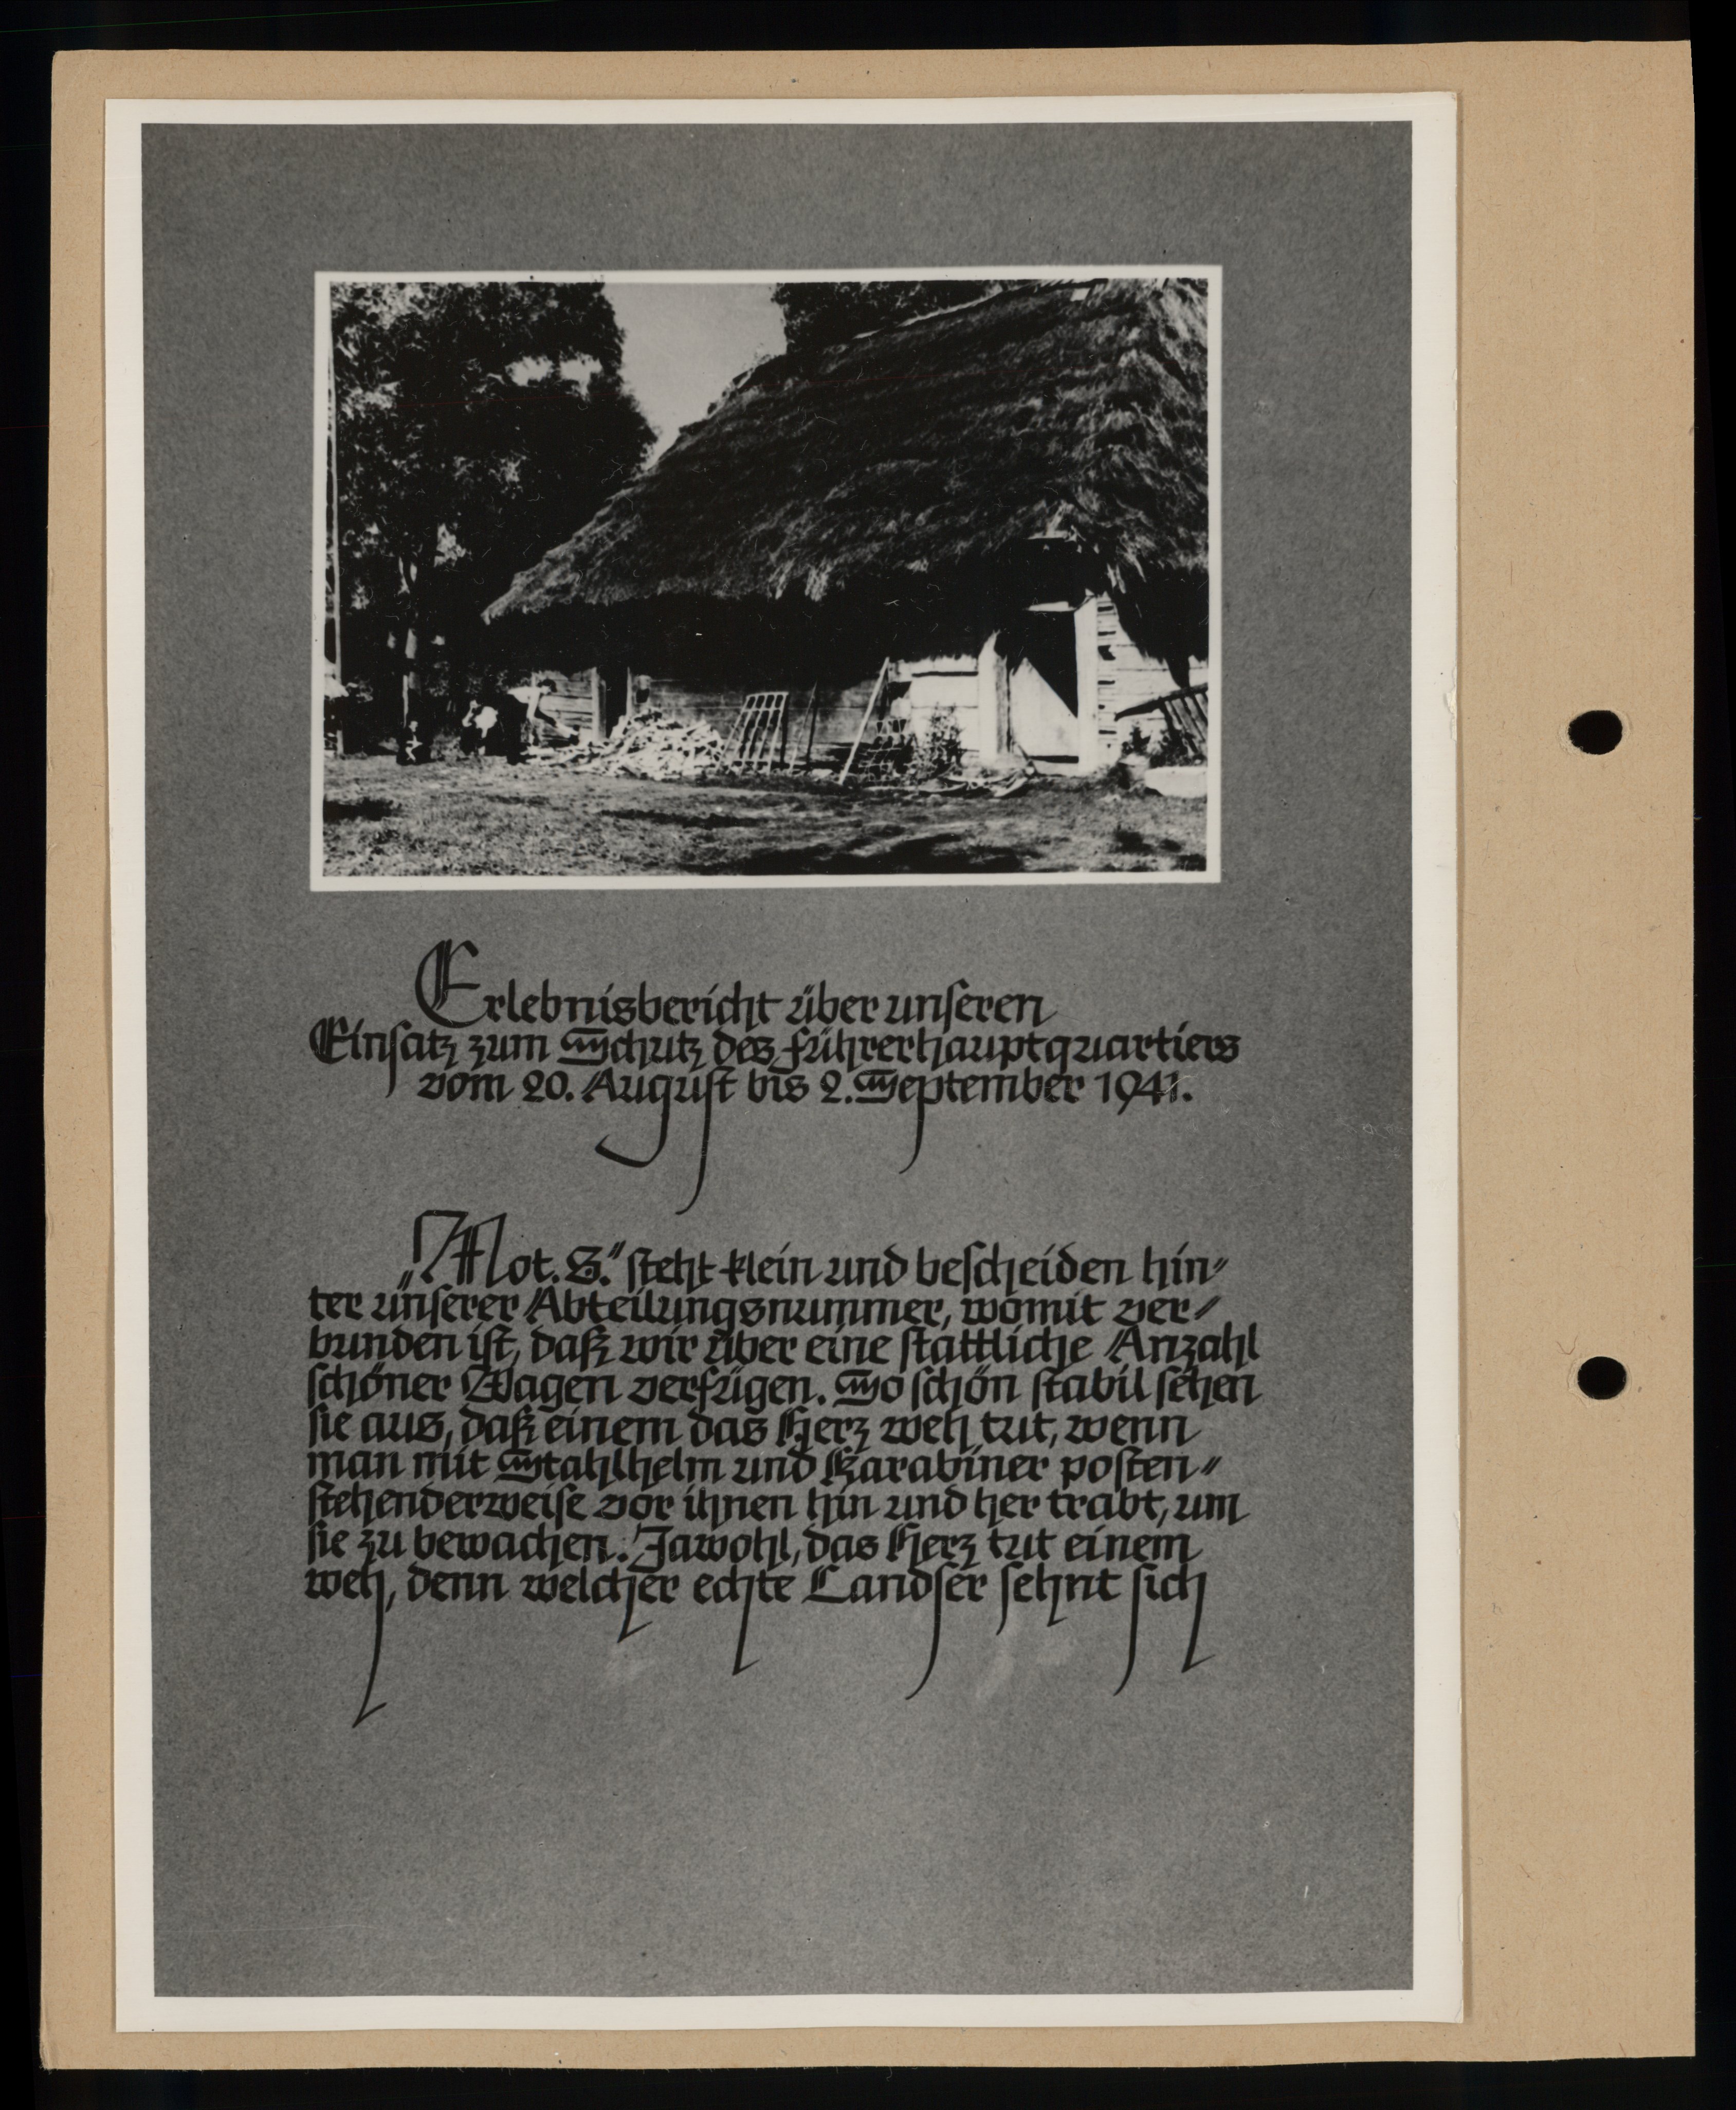 Erlebnisbericht über unseren
Einsatz zum Schutz des Führerhauptquartiers
vom 20. August bis 2. September 1941.
„Mot. S.“ steht klein und bescheiden hin-
ter unserer Abteilungsnummer, womit ver-
bunden ist, daß wir über eine stattliche Anzahl
schöner Wagen verfügen. So schön stabil sehen
sie aus, daß einem das Herz weh tut, wenn
man mit Stahlhelm und Karabiner posten-
stehenderweise vor ihnen hin und her trabt, um
sie zu bewachen. Jawohl, das Herz tut einem
weh, denn welcher echte Landser sehnt sich